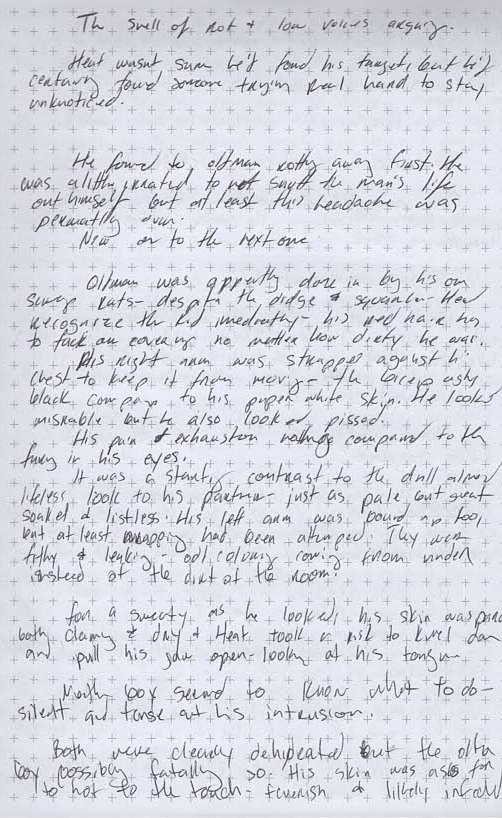 The smell of rot & low voices arguing.
Heat wasnt sure he'd found his target, but he'd
certainly found someone trying real hard to stay
unknoticed.
He found to oltman rotting away first. He
was a little irritated to not snuff the man's life
out himself but at least this headache was
permanently over.
Now on to the next one
Oltman was apparently done in by his own
sewage rats- despite the didge & squander- Heat
recognize the kid imediately- his red hair
to fuck an covering no matter how dirty he was.
His right arm was strapped against his
chest to keep it from moving- the bicep ugly
black compare to his paper white skin. He looks
misrable but he also looked pissed.
His pain & exhaustion nothing compared to the
fury in his eyes.
It was a contrast to the dull almost
lifeless look to his partner- just as pale but sweat
soaked & listless. His left arm was bound up too,
but at least wrapping had been attempted. They were
filthy & leaking- odd coloring coming from under
instead of the dirt of the room.
For a sweaty as he looked, his skin was
both clammy & dry & Heat took a risk to kneel down
and pull his jaw open- looking at his tongue
boy seemed to know what to do-
silent and tense at his intrusion.
Both were clearly dehydrated but the other
boy possibly fatally so. His skin was far
to hot to the touch- feverish & likely infected